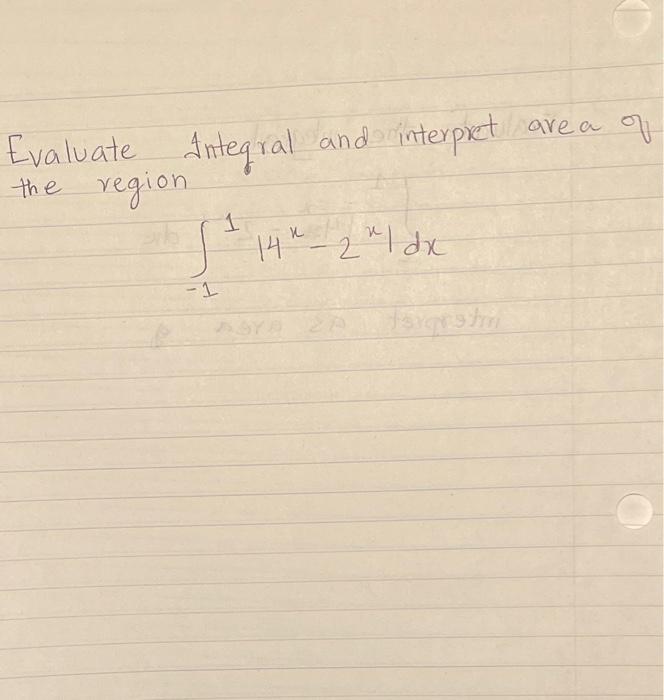 Evaluate Integral and interpret area of
the region
∫₋₁¹ |4ˣ - 2ˣ| dx